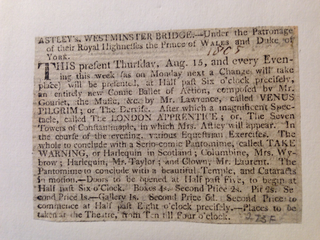 ASTLEY's, WESTMINSTER BRIDGE.—Under the Patronage
of their Royal Highnesses the Prince of WALES and Duke of
YORK.
1805
THIS present Thursday, Aug. 15, and every Even-
ing this week (as on Monday next a Change will take
place) will be presented, at Half past Six o'clock precisely,
an entirely new Comic Ballet of Action, composed by Mr.
Gouriet, the Music, &c. by Mr. Lawrence, called VENUS'
PILGRIM; or The Dervise. After which a magnificent Spec-
tacle, called The LONDON APPRENTICE; or, The Seven
Towers of Constantinople, in which Mrs. Astley will appear. In
the course of the evening, various Equestrian Exercises. The
whole to conclude with a Serio-comic Pantomime, called, TAKE
WARNING, or Harlequin in Scotland; Columbine, Mrs. Wy-
brow; Harlequin, Mr. Taylor; and Clown, Mr. Laurent. The
Pantomime to conclude with a beautiful Temple, and Cataracts
in motion.—Doors to be opened at Half past Five, to begin at
Half past Six o'Clock. Boxes 4s. Second Price 2s. Pit 2s. Se-
cond Price 1s.—Gallery 1s. Second Price 6d. Second Price to
commence at Half past Eight o'clock precisely.—Places to be
taken at the Theatre, from Ten till Four o'clock.